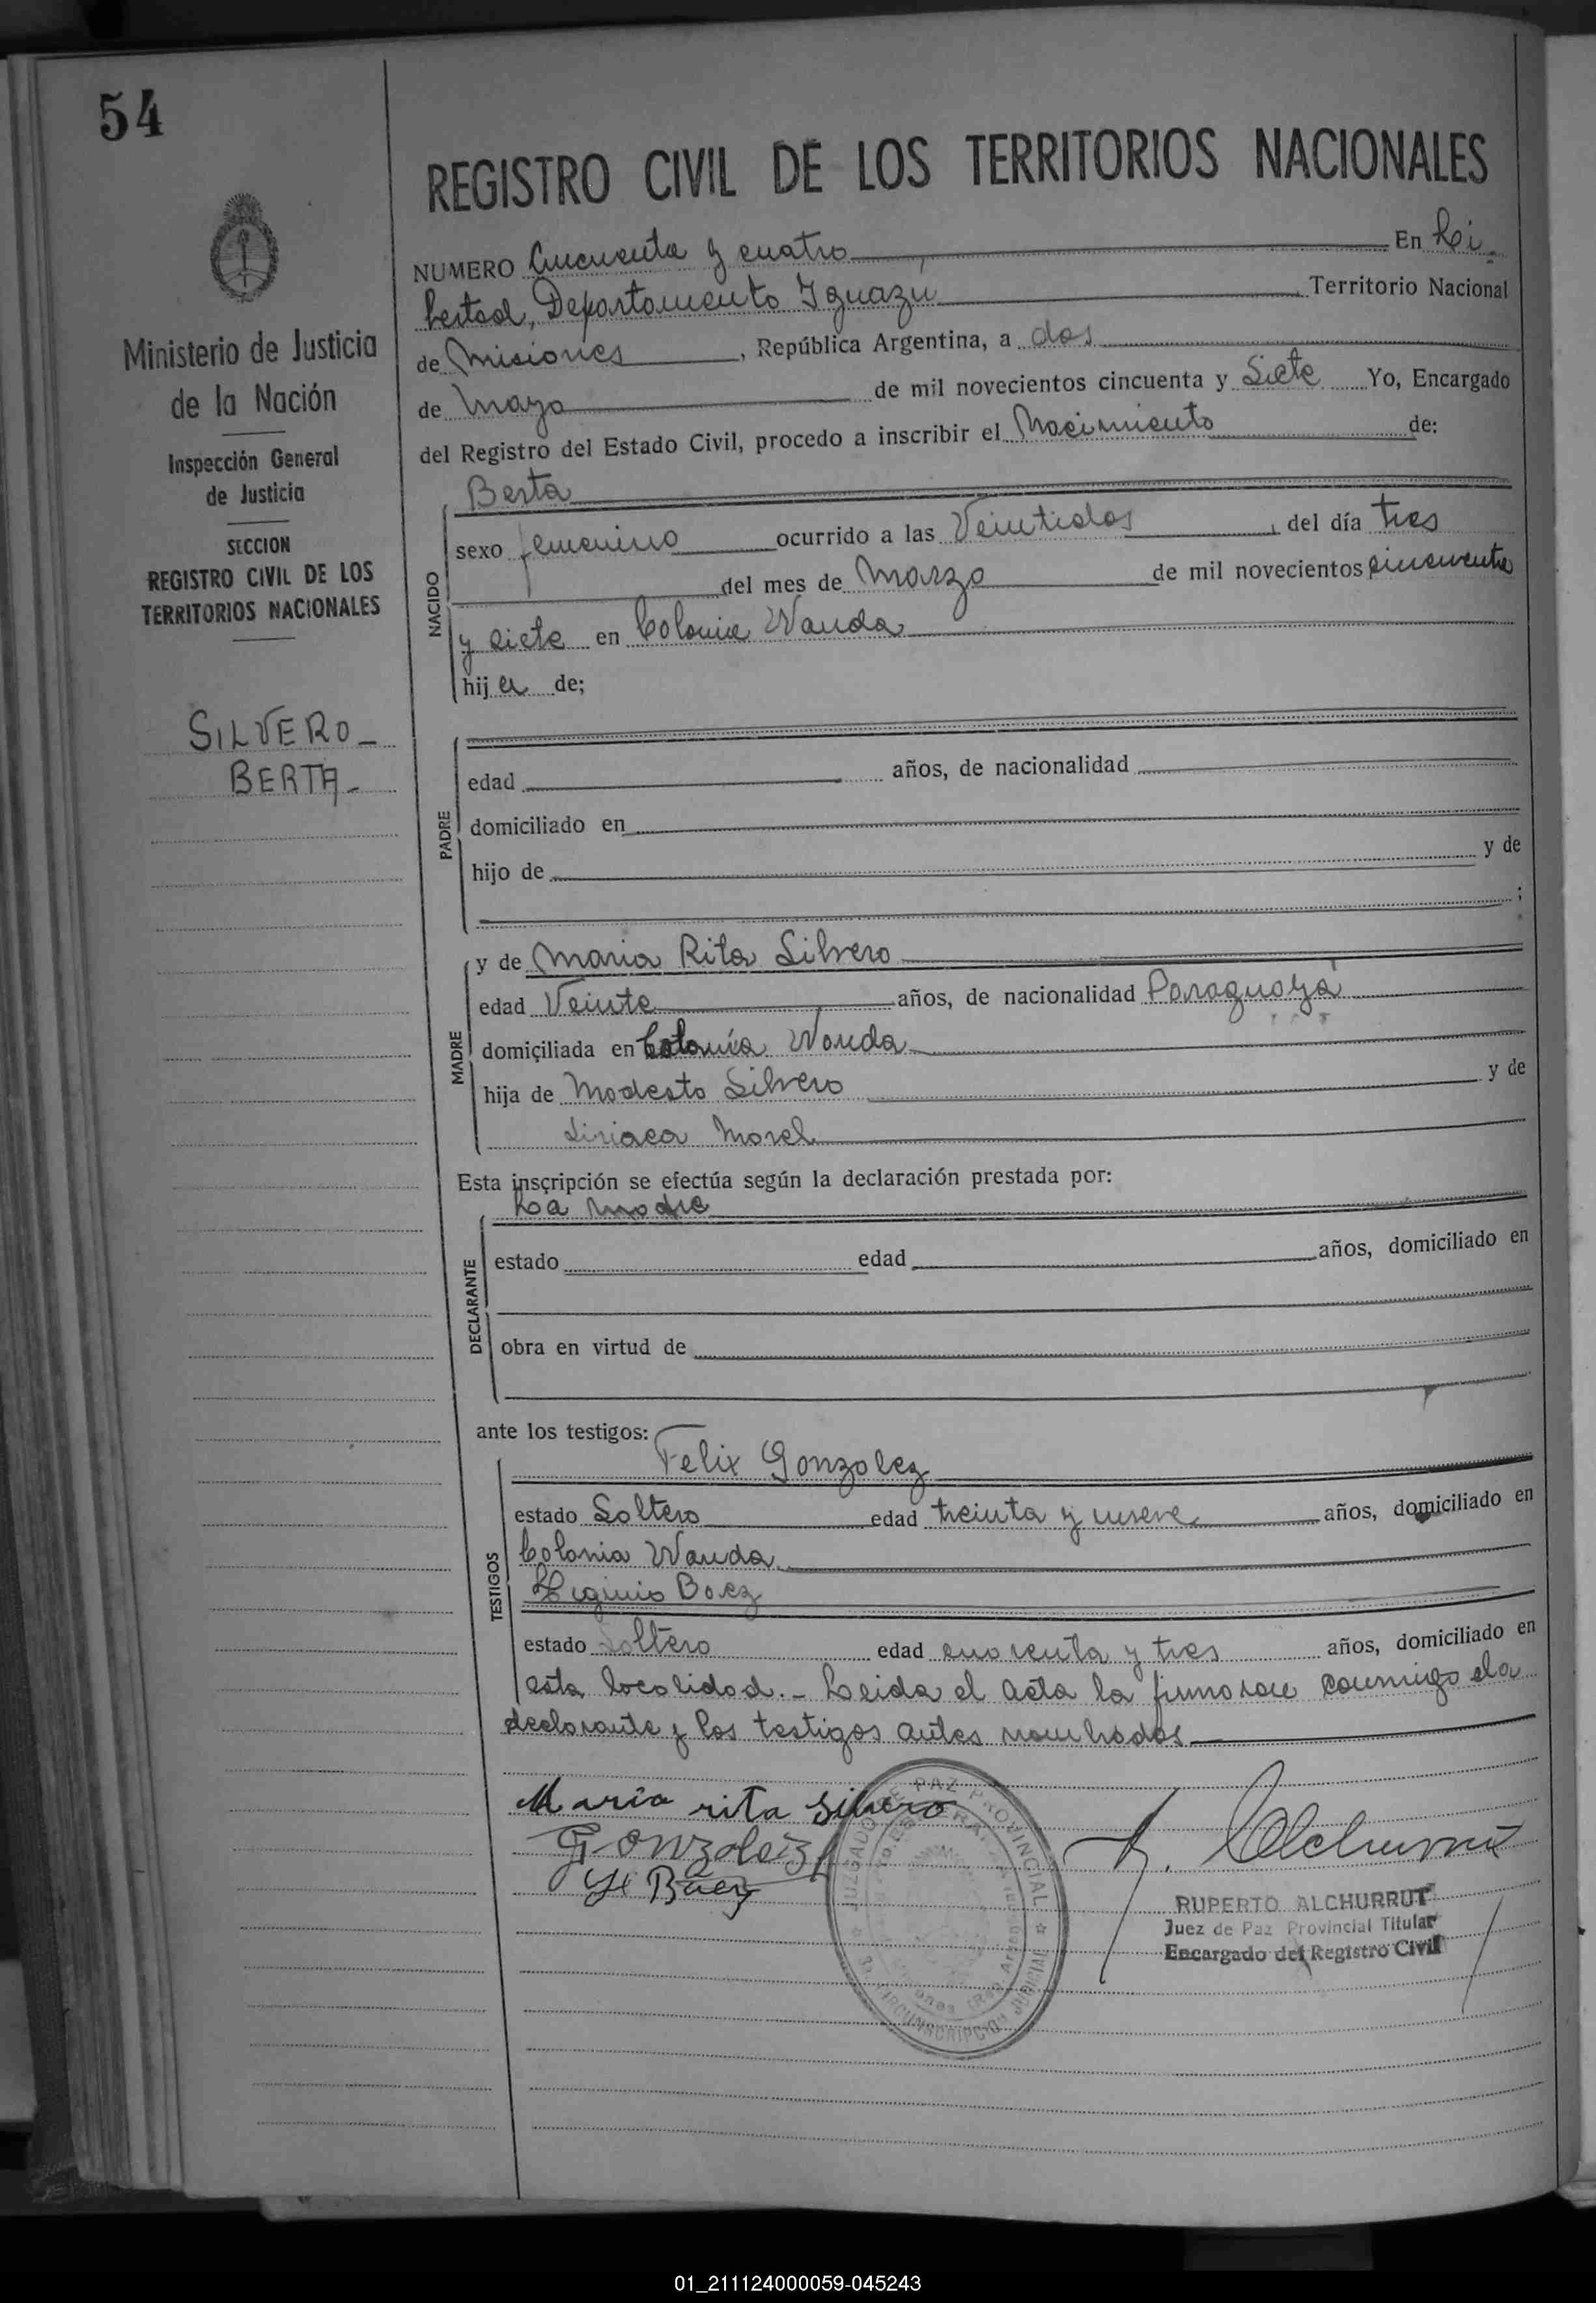 54
REGISTRO CIVIL DE LOS TERRITORIOS NACIONALES
Ministerio de Justicia
de la Nación
Inspección General
de Justicia
SECCION
REGISTRO CIVIL DE LOS
TERRITORIOS NACIONALES
SILVERO_
BERTA_
NUMERO Cincuenta y cuatro En Li_
bertad, Departamento Iguazu Territorio Nacional
de Misiones, República Argentina, a dos
de Mayo de mil novecientos cincuenta y Siete Yo, Encargado
del Registro del Estado Civil, procedo a inscribir el Nacimiento de:
NACIDO
Berta
sexo femenino ocurrido a las Veintidos, del día tres
del mes de Marzo de mil novecientos cincuenta
y siete en Colonia Wanda
hija de;
PADRE
edad años, de nacionalidad
domiciliado en
hijo de y de
;
MADRE
y de Maria Rita Silvero
edad Veinte años, de nacionalidad Paraguaya
domiciliada en Colonia Wanda
hija de Modesto Silvero y de
Siriaca Morel
Esta inscripción se efectúa según la declaración prestada por:
DECLARANTE
La madre
estado edad años, domiciliado en
obra en virtud de
ante los testigos:
TESTIGOS
Felix Gonzalez
estado Soltero edad treinta y nueve años, domiciliado en
Colonia Wanda
Higinio Baez
estado Soltero edad cuarenta y tres años, domiciliado en
esta localidad.- Leida el acta la firmaron conmigo la
declarante y los testigos antes nombrados
Maria rita silvero
Gonzalez
H Baez
JUZGADO DE PAZ PROVINCIAL
3ª CIRCUNSCRIPCION JUDICIAL
R. Alchurrut
RUPERTO ALCHURRUT
Juez de Paz Provincial Titular
Encargado del Registro Civil
01_211124000059-045243